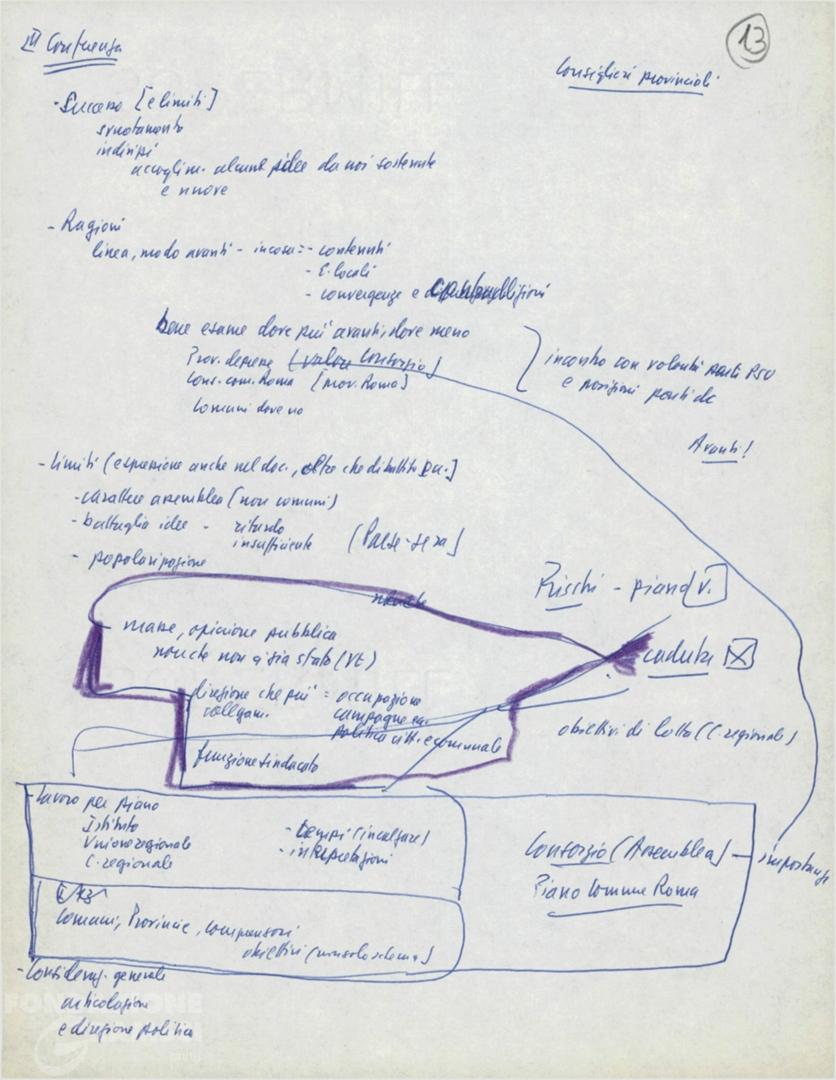 13
III Conferenza
Consiglieri provinciali
- Successo [e limiti]
svuotamento
indirizzi
accoglim. alcune idee da noi sostenute
e nuove
- Ragioni
linea, modo avanti - in cosa: - contenuti
- E. locali
- convergenze e
bene esame dove più avanti, dove meno
Prov. (valore Consorzio)
Cons. com. Roma (prov. Roma)
Comuni dove no
incontro con volontà parti PSU
e posizioni parti dc
Avanti!
- Limiti (espressione anche nel doc., oltre che dibattito
- carattere assemblea (non comuni)
- battaglia idee - ritardo
insufficiente (Paese-sera)
- popolarizzazione
Rischi - piano V.
masse, opinione pubblica
non che non ci sia stato (VT)
caduta
direzione che più = occupazione
collegam. campagne
politica citt. e comunale
obiettivi di lotta (C. regionale)
funzione sindacato
- Lavoro per piano
Istituto
Unione regionale
C. regionale
- tempi (incalzare)
- interpretazioni
Consorzio (Assemblea) - importanza
Piano Comune Roma
Comuni, Provincie, comprensori
obiettivi (
- Consideraz. generale
articolazione
e direzione politica
FONDAZIONE